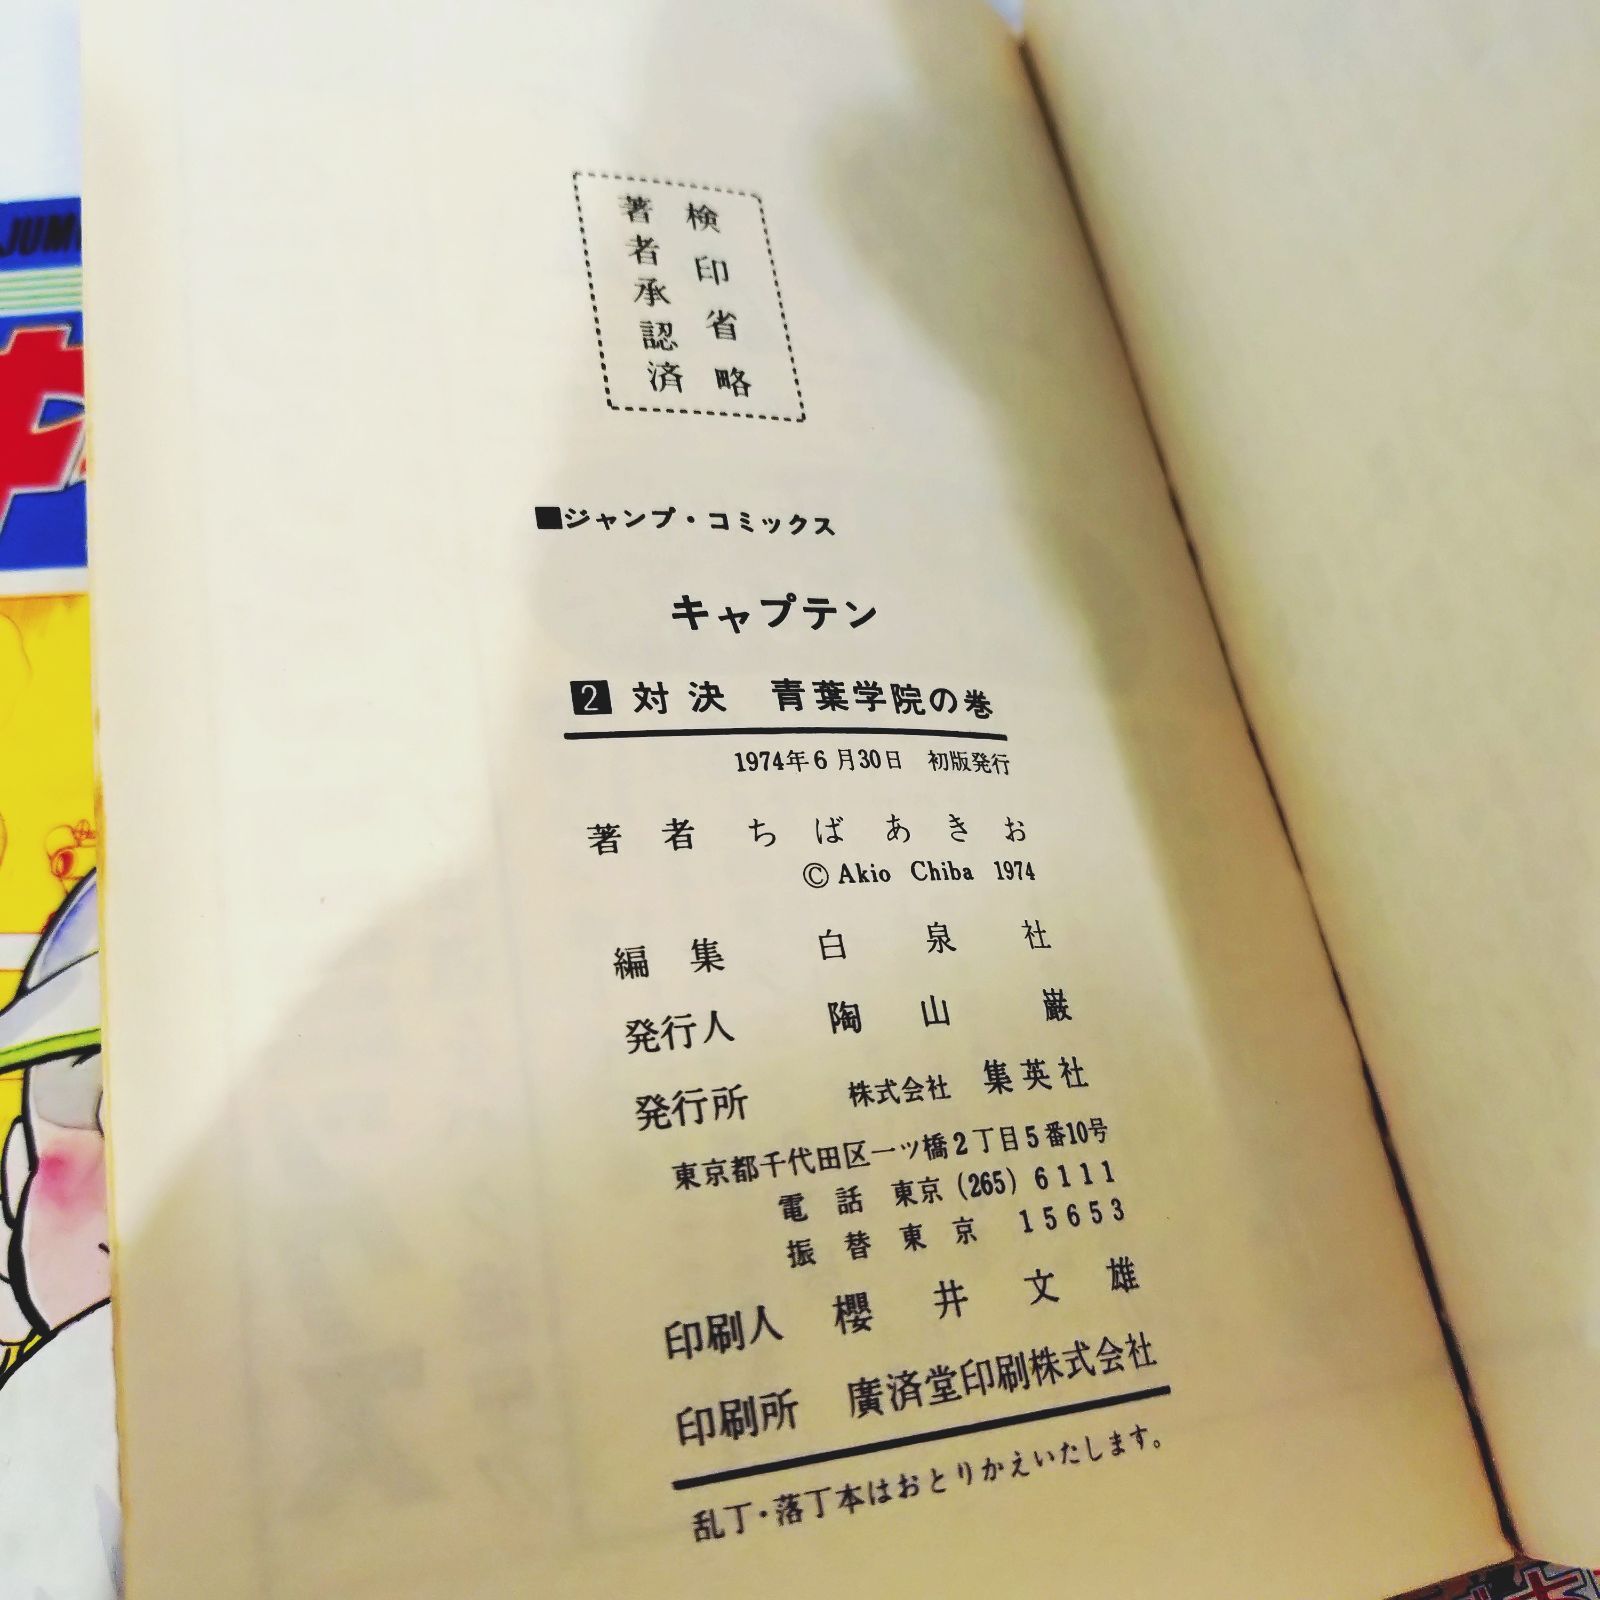 検印省略
著者承認済
■ジャンプ・コミックス
キャプテン
2 対決 青葉学院の巻
1974年6月30日 初版発行
著者 ちばあきお
© Akio Chiba 1974
編集 白泉社
発行人 陶山巌
発行所 株式会社 集英社
東京都千代田区一ツ橋2丁目5番10号
電話 東京(265)6111
振替東京 15653
印刷人 櫻井文雄
印刷所 廣済堂印刷株式会社
乱丁・落丁本はおとりかえいたします。